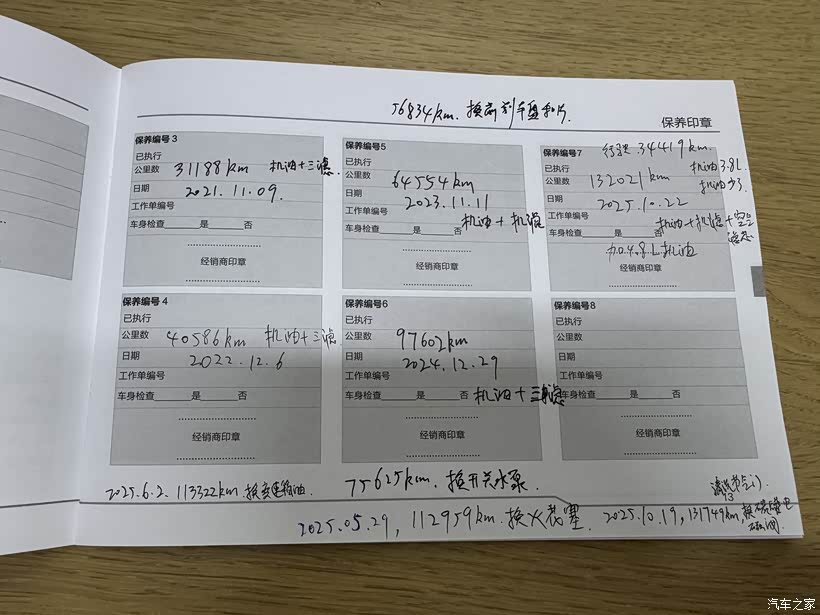 56834km. 换前刹车盘和片.
保养印章
保养编号 3
已执行
公里数 31188km 机油+三滤.
日期 2021.11.09.
工作单编号
车身检查 是 否
经销商印章
保养编号5
已执行
公里数 64554km
日期 2023.11.11
工作单编号
车身检查 是 否 机油+机滤
经销商印章
保养编号7 行驶34419km.
已执行 机油3.8L
公里数 132021km 机油
日期 2025.10.22
工作单编号
车身检查 是 否 机油+机滤+空
滤
加4.8L机油
经销商印章
保养编号 4
已执行
公里数 40586km 机油+三滤.
日期 2022.12.6
工作单编号
车身检查 是 否
经销商印章
保养编号6
已执行
公里数 97602km
日期 2024.12.29
工作单编号
车身检查 是 否 机油+三滤
经销商印章
保养编号8
已执行
公里数
日期
工作单编号
车身检查 是 否
经销商印章
2025.6.2. 113322km. 换变速箱油.
75625km. 换开关水泵.
2025.05.29, 112959km. 换火花塞.
2025.10.19, 131749km, 换碳罐电
磁阀.
汽车之家